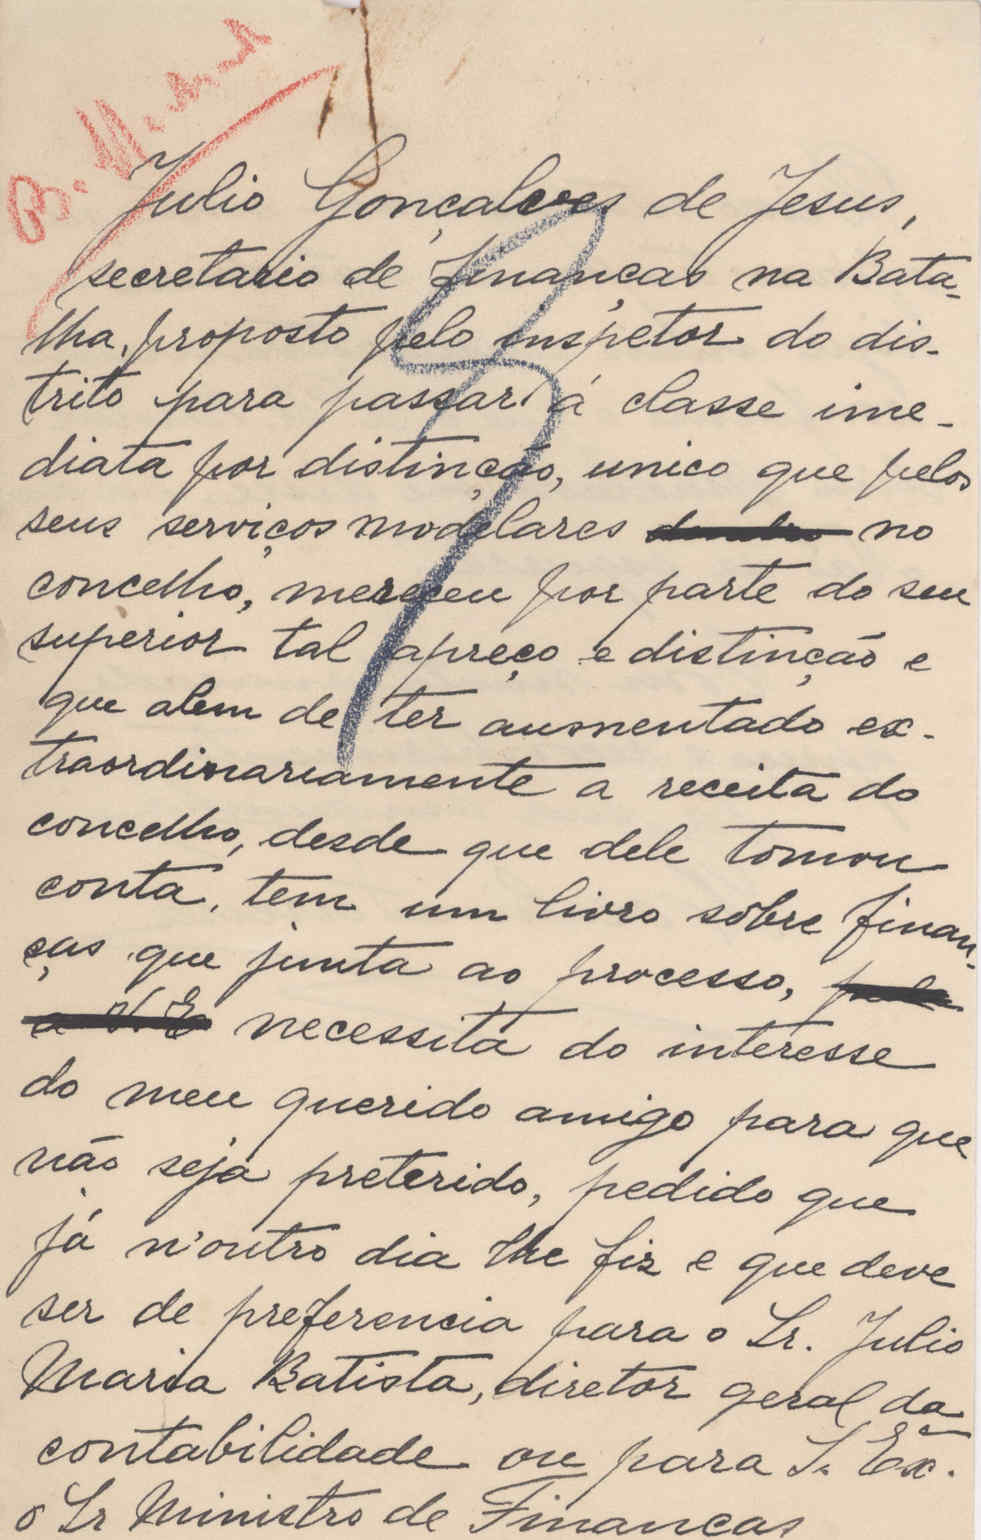 Julio Gonçalves de Jesus,
secretario de finanças na Bata-
lha, proposto pelo inspetor do dis-
trito para passar á classe ime-
diata por distinção, unico que pelos
seus serviços modelares no
concelho, mereceu por parte do seu
superior tal apreço e distinção e
que alem de ter aumentado ex-
traordinariamente a receita do
concelho, desde que dele tomou
conta, tem um livro sobre finan-
ças que junta ao processo,
necessita do interesse
do meu querido amigo para que
não seja preterido, pedido que
já n'outro dia lhe fiz e que deve
ser de preferencia para o Sr. Julio
Maria Batista, diretor geral da
contabilidade ou para S. Exª.
o Sr Ministro de Finanças